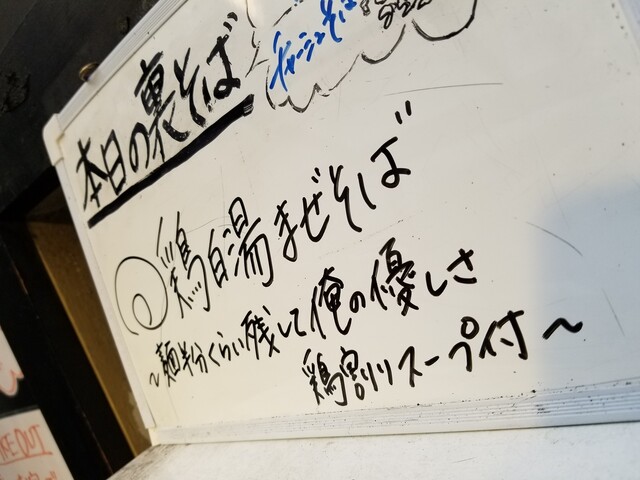 本日の裏そば
チャーシューそば
鶏白湯まぜそば
~麺半分くらい残して俺の優しさ
鶏割りスープ付~
KE OUT